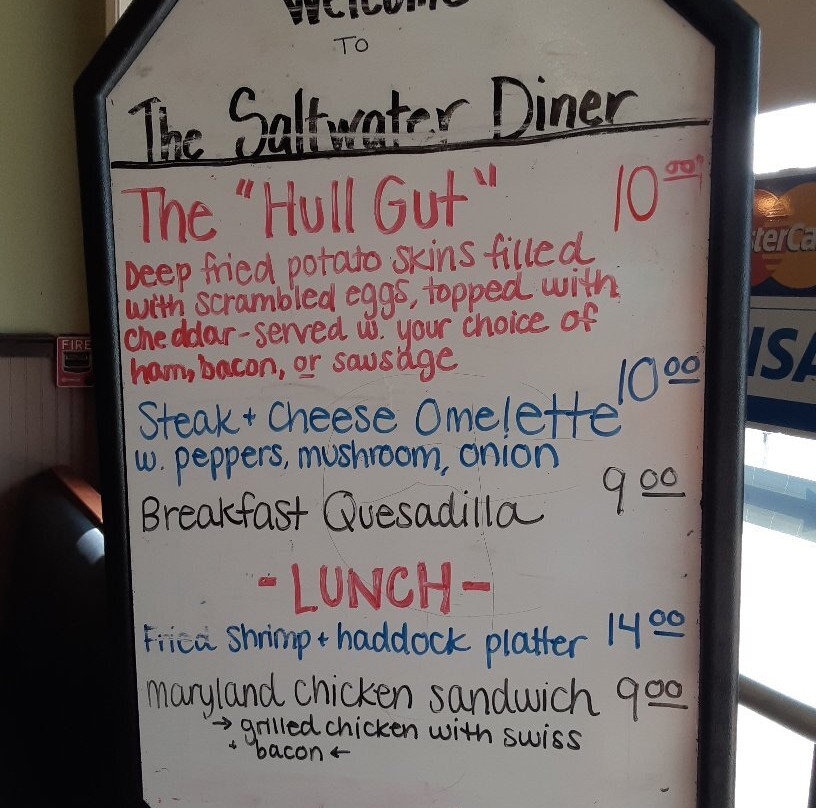 Welcome
TO
The Saltwater Diner
The "Hull Gut" 10 00
Deep fried potato skins filled
with scrambled eggs, topped with
cheddar-served w. your choice of
ham, bacon, or sausage
10 00
Steak + Cheese Omelette
w. peppers, mushroom, onion
Breakfast Quesadilla 9 00
- LUNCH -
Fried Shrimp + haddock platter 14 00
maryland chicken sandwich 9 00
→ grilled chicken with swiss
+ bacon ←
FIRE
terCa
ISA